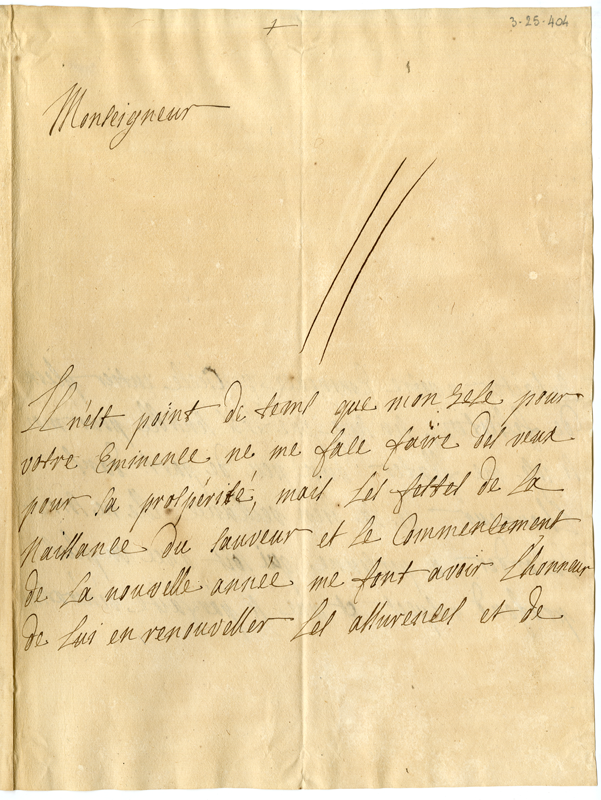 3-25-404
Monseigneur
Il n'est point de tems que mon zele pour
votre Eminence ne me fase faire des veux
pour sa prospérité, mais les festes de la
Naissance du sauveur et le Commencement
de la nouvelle année me font avoir l'honneur
de lui en renouveller les assurences et de